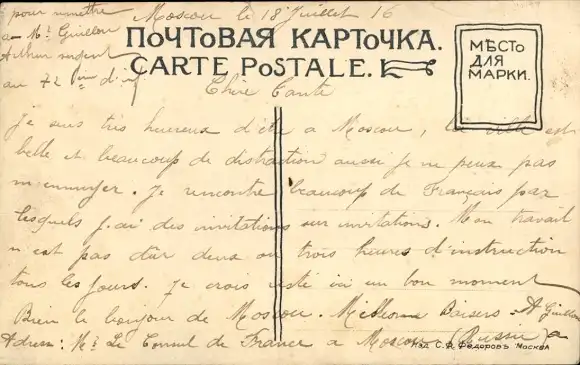 pour remettre
a Mr Guillou
Arthur sergent
au 72 d'inf
Moscou le 18 Juillet 16
ПОЧТОВАЯ КАРТОЧКА.
CARTE POSTALE.
МѢСТО
ДЛЯ
МАРКИ.
Chère Tante
Je suis très heureux d'être a Moscou, la ville est
belle et beaucoup de distraction aussi je ne peux pas
m'ennuyer. Je rencontre beaucoup de Français par
lesquels j'ai des invitations sur invitations. Mon travail
n'est pas dûr deux ou trois heures d'instruction
tous les jours. Je crois ici un bon moment
Bien le bonjour de Moscou. Millions Baisers A Guillou
Adress: Mr Le Consul de France a Moscou (Russie)
Изд. С. Ф. Федоровъ Москва